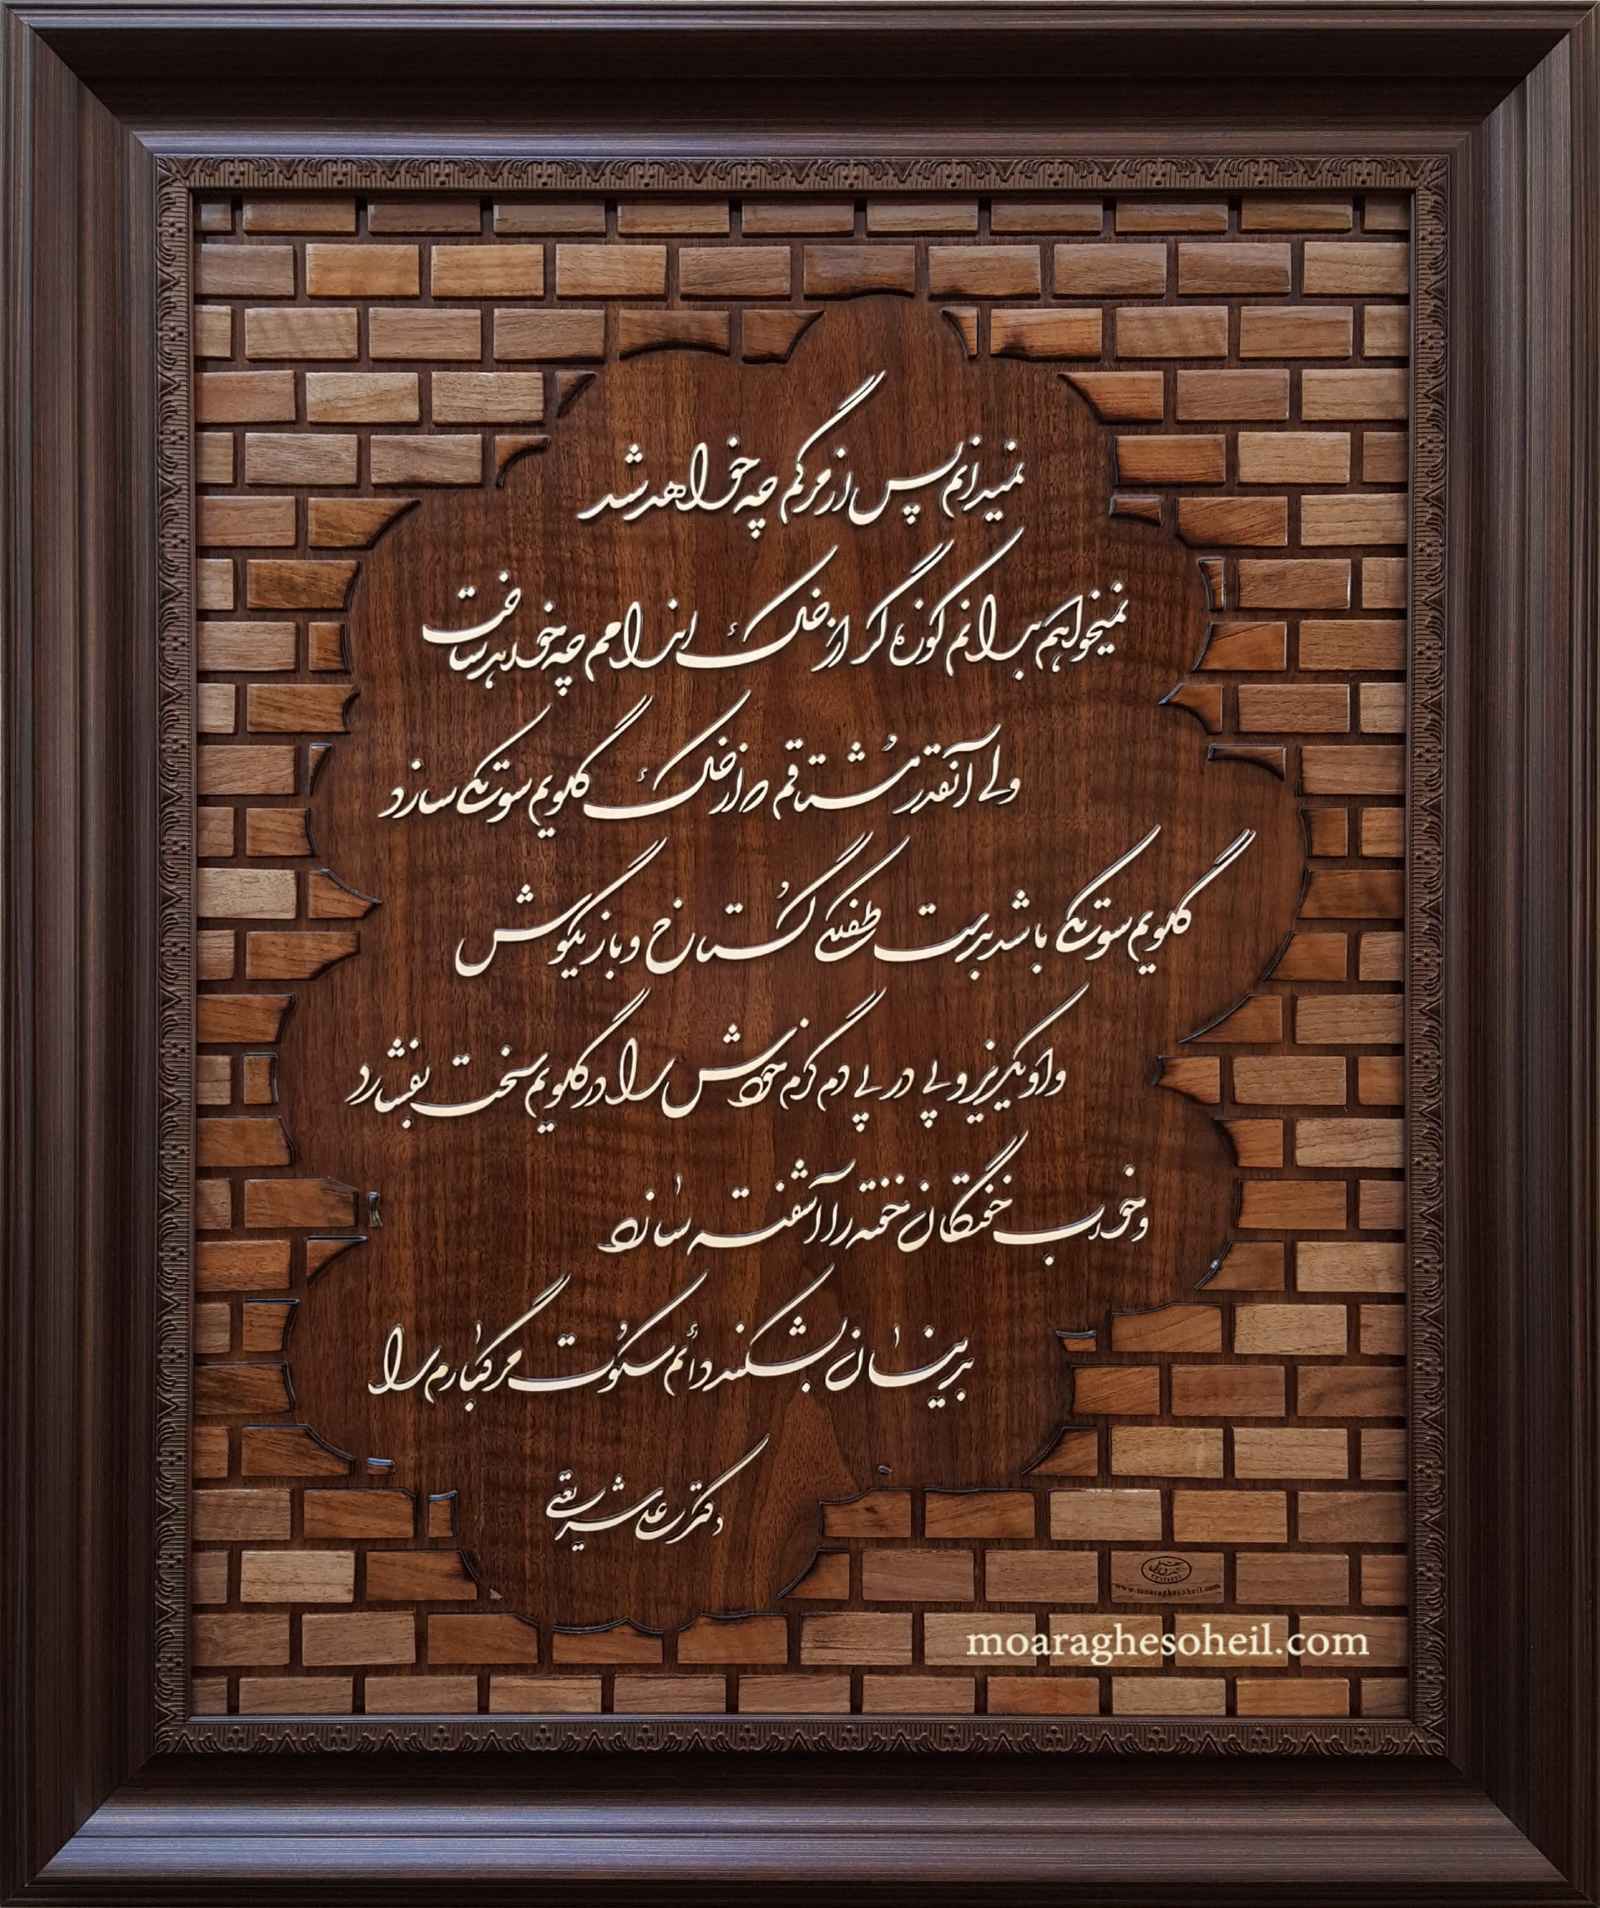 نمیدانم پس از مرگم چه خواهد شد
نمیخواهم بدانم کوزه‌گر از خاک اندامم چه خواهد ساخت
ولی آنقدر مشتاقم که از خاک گلویم سوتکی سازد
گلویم سوتکی باشد بدست طفلکی گستاخ و بازیگوش
و او یکریز و پی در پی دم گرم خودش را در گلویم سخت بفشارد
و خواب خفتگان خفته را آشفته سازد
بدینسان بشکند دائم سکوت مرگبارم را
دکتر علی شریعتی
www.moaraghesoheil.com
moaraghesoheil.com